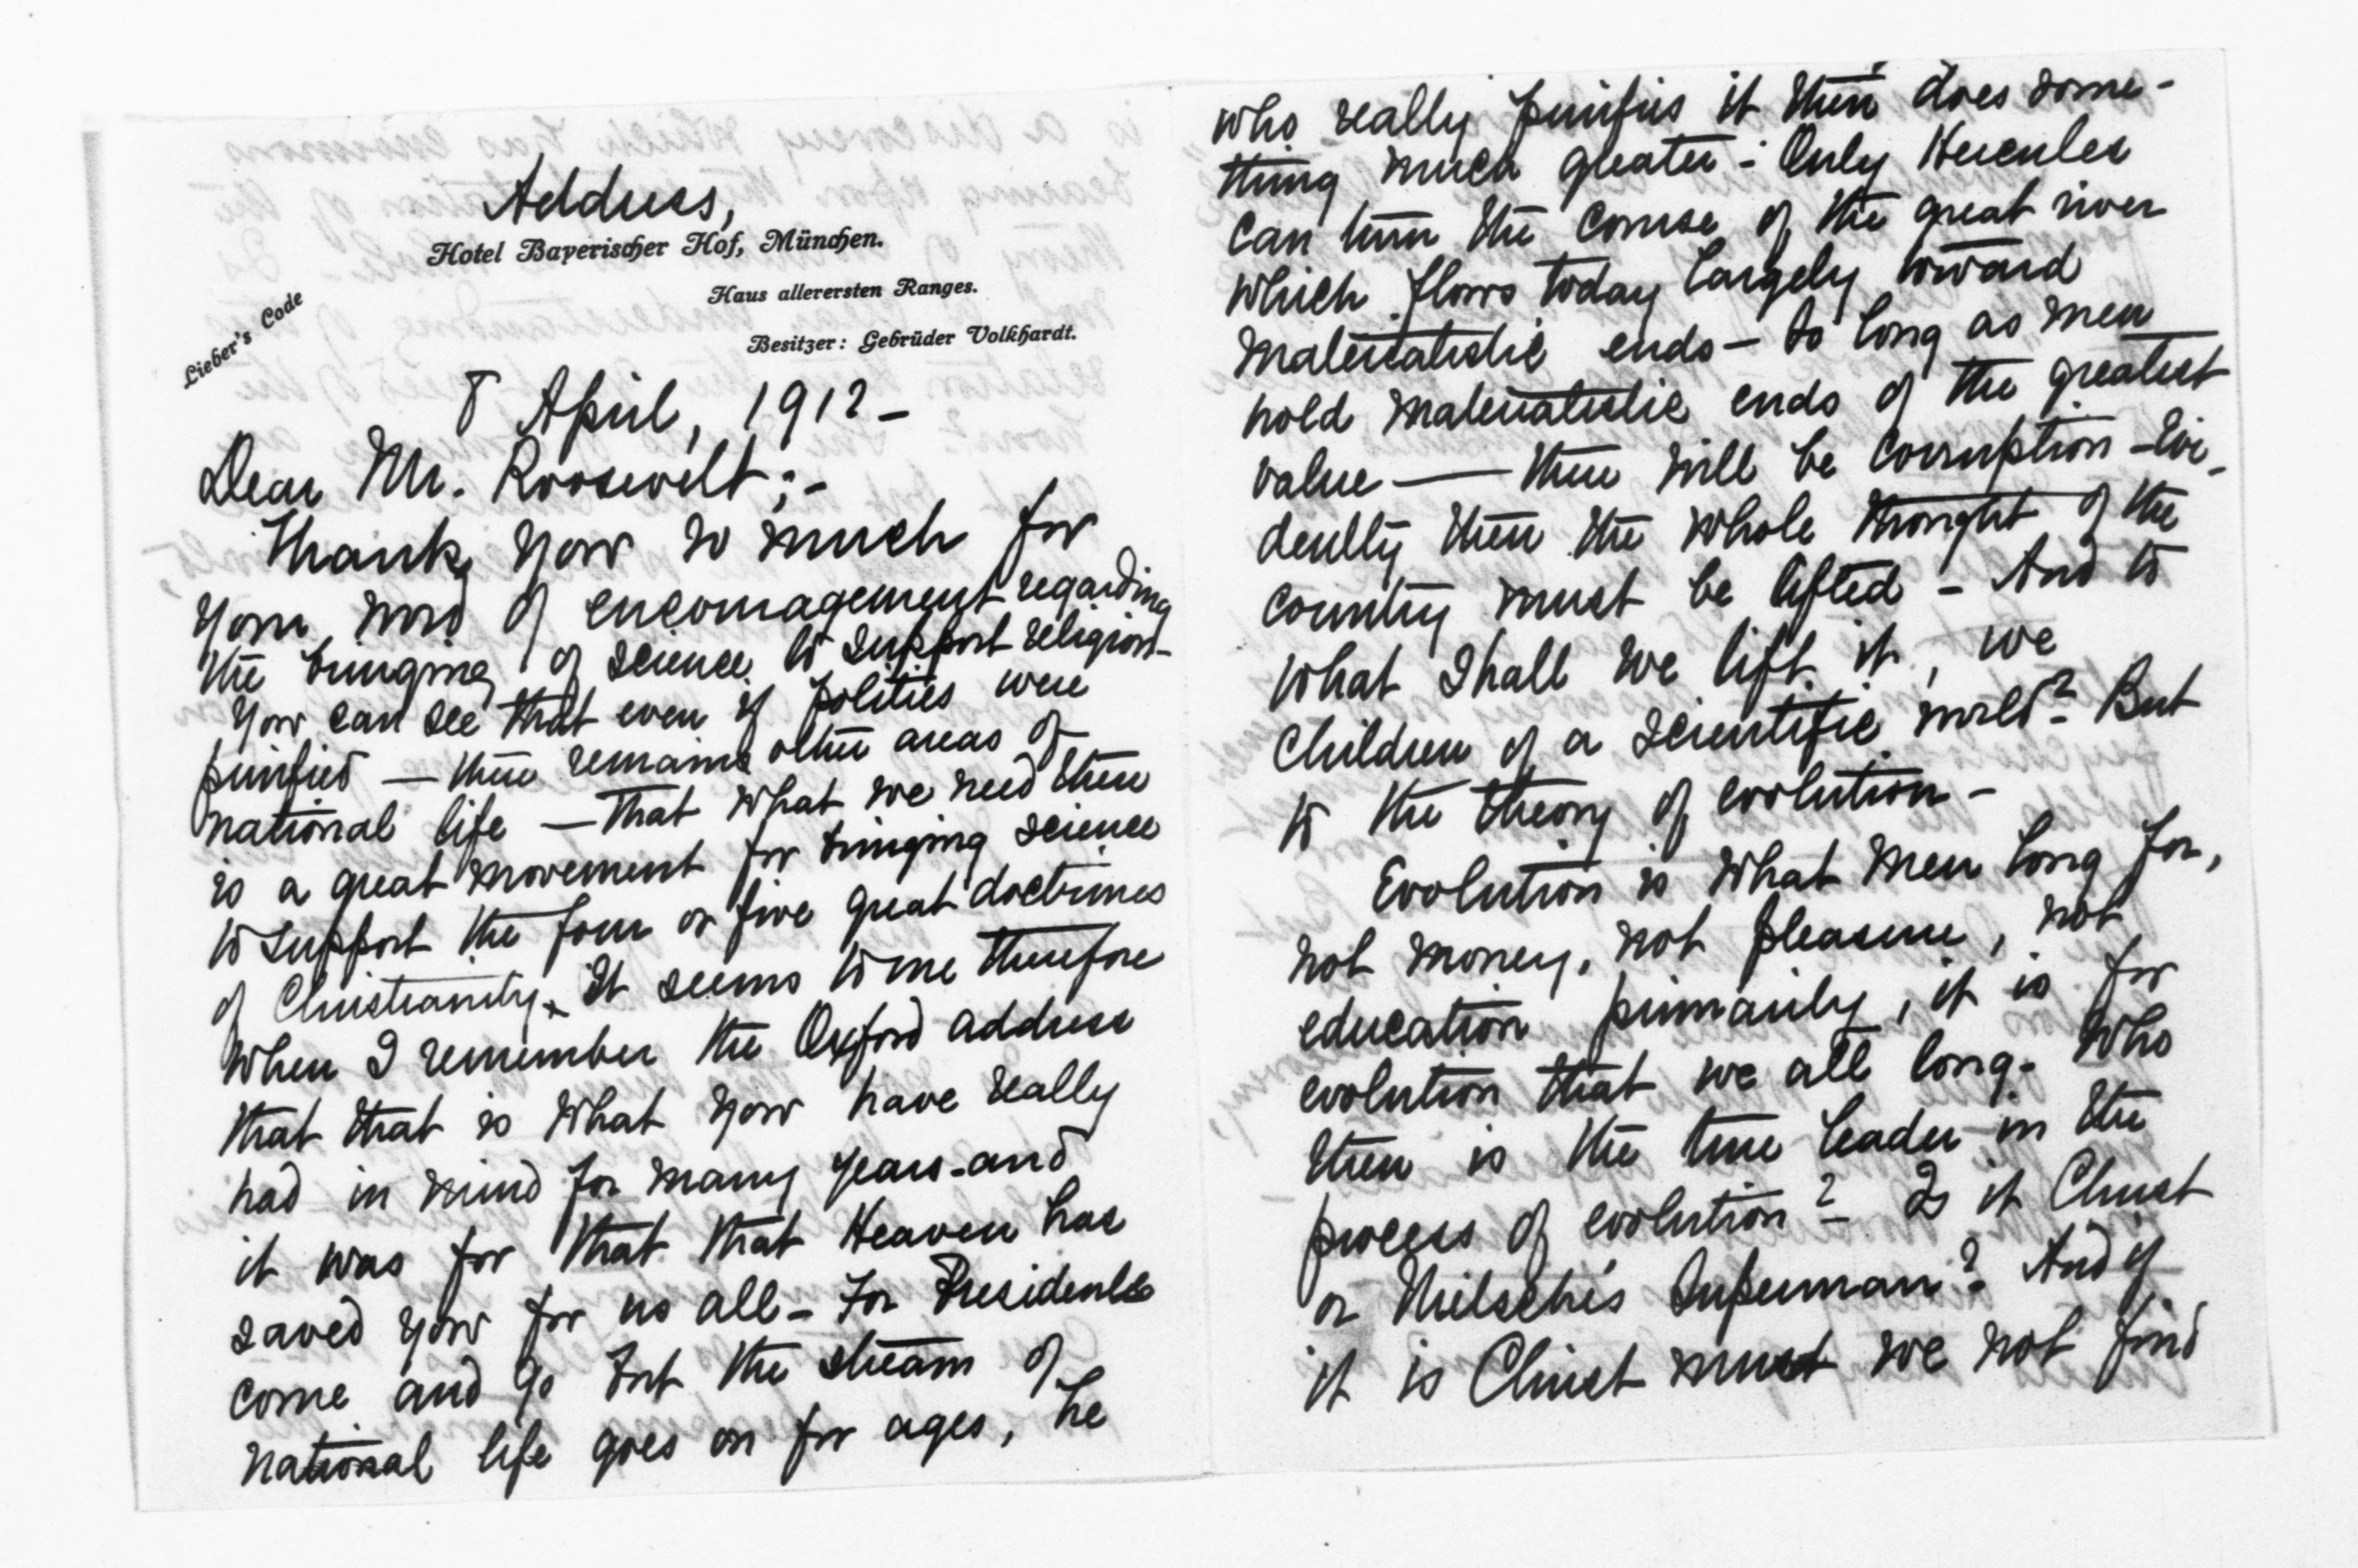 Address,
Hotel Bayerischer Hof, München.
Haus allerersten Ranges.
Lieber's Code
Besitzer: Gebrüder Volkhardt.
8 April, 1912 –
Dear Mr. Roosevelt;-
Thank you so much for
your word of encouragement regarding
the bringing of science to support religion-
You can see that even if politics were
purified — there remains other areas of
national life — that what we need then
is a great movement for bringing science
to support the four or five great doctrines
of Christianity. It seems to me therefore
when I remember the Oxford address
that that is what you have really
had in mind for many years - and
it was for that that Heaven has
saved you for us all - For Presidents
come and go but the stream of
national life goes on for ages, he
who really purifies it then does some-
thing much greater - Only Hercules
can turn the course of the great river
which flows today largely toward
materialistic ends - So long as men
hold materialistic ends of the greatest
value — there will be corruption - Evi-
dently then the whole thought of the
country must be lifted - And to
what shall we lift it, we
children of a scientific world? But
to the theory of evolution -
Evolution is what men long for,
not money, not pleasure, not
education primarily, it is for
evolution that we all long. Who
then is the true leader in the
process of evolution? Is it Christ
or Nietsche's Superman? And if
it is Christ must we not find